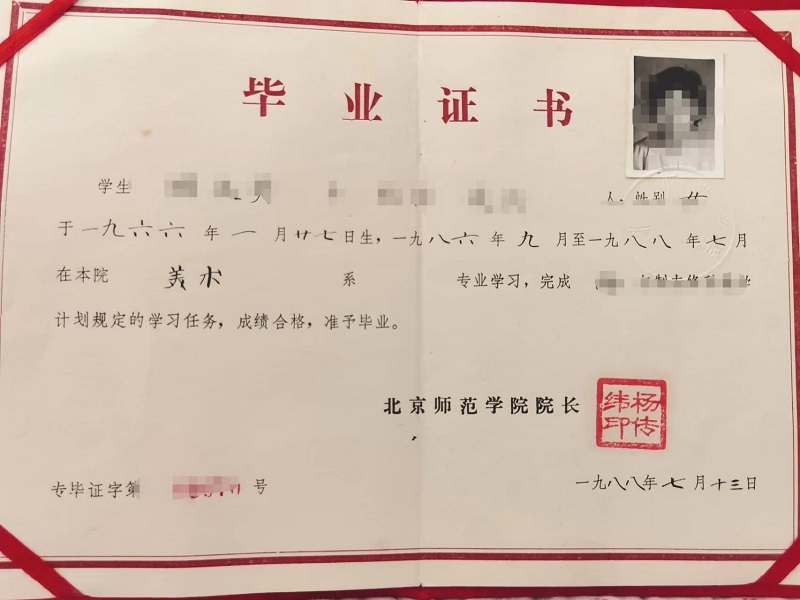 毕业证书
学生 人，性别 女
于一九六六年一月廿七日生，一九八六年九月至一九八八年七月
在本院 美术 系 专业学习，完成
计划规定的学习任务，成绩合格，准予毕业。
北京师范学院院长
杨传纬印
专毕证字第 号
一九八八年七月十三日